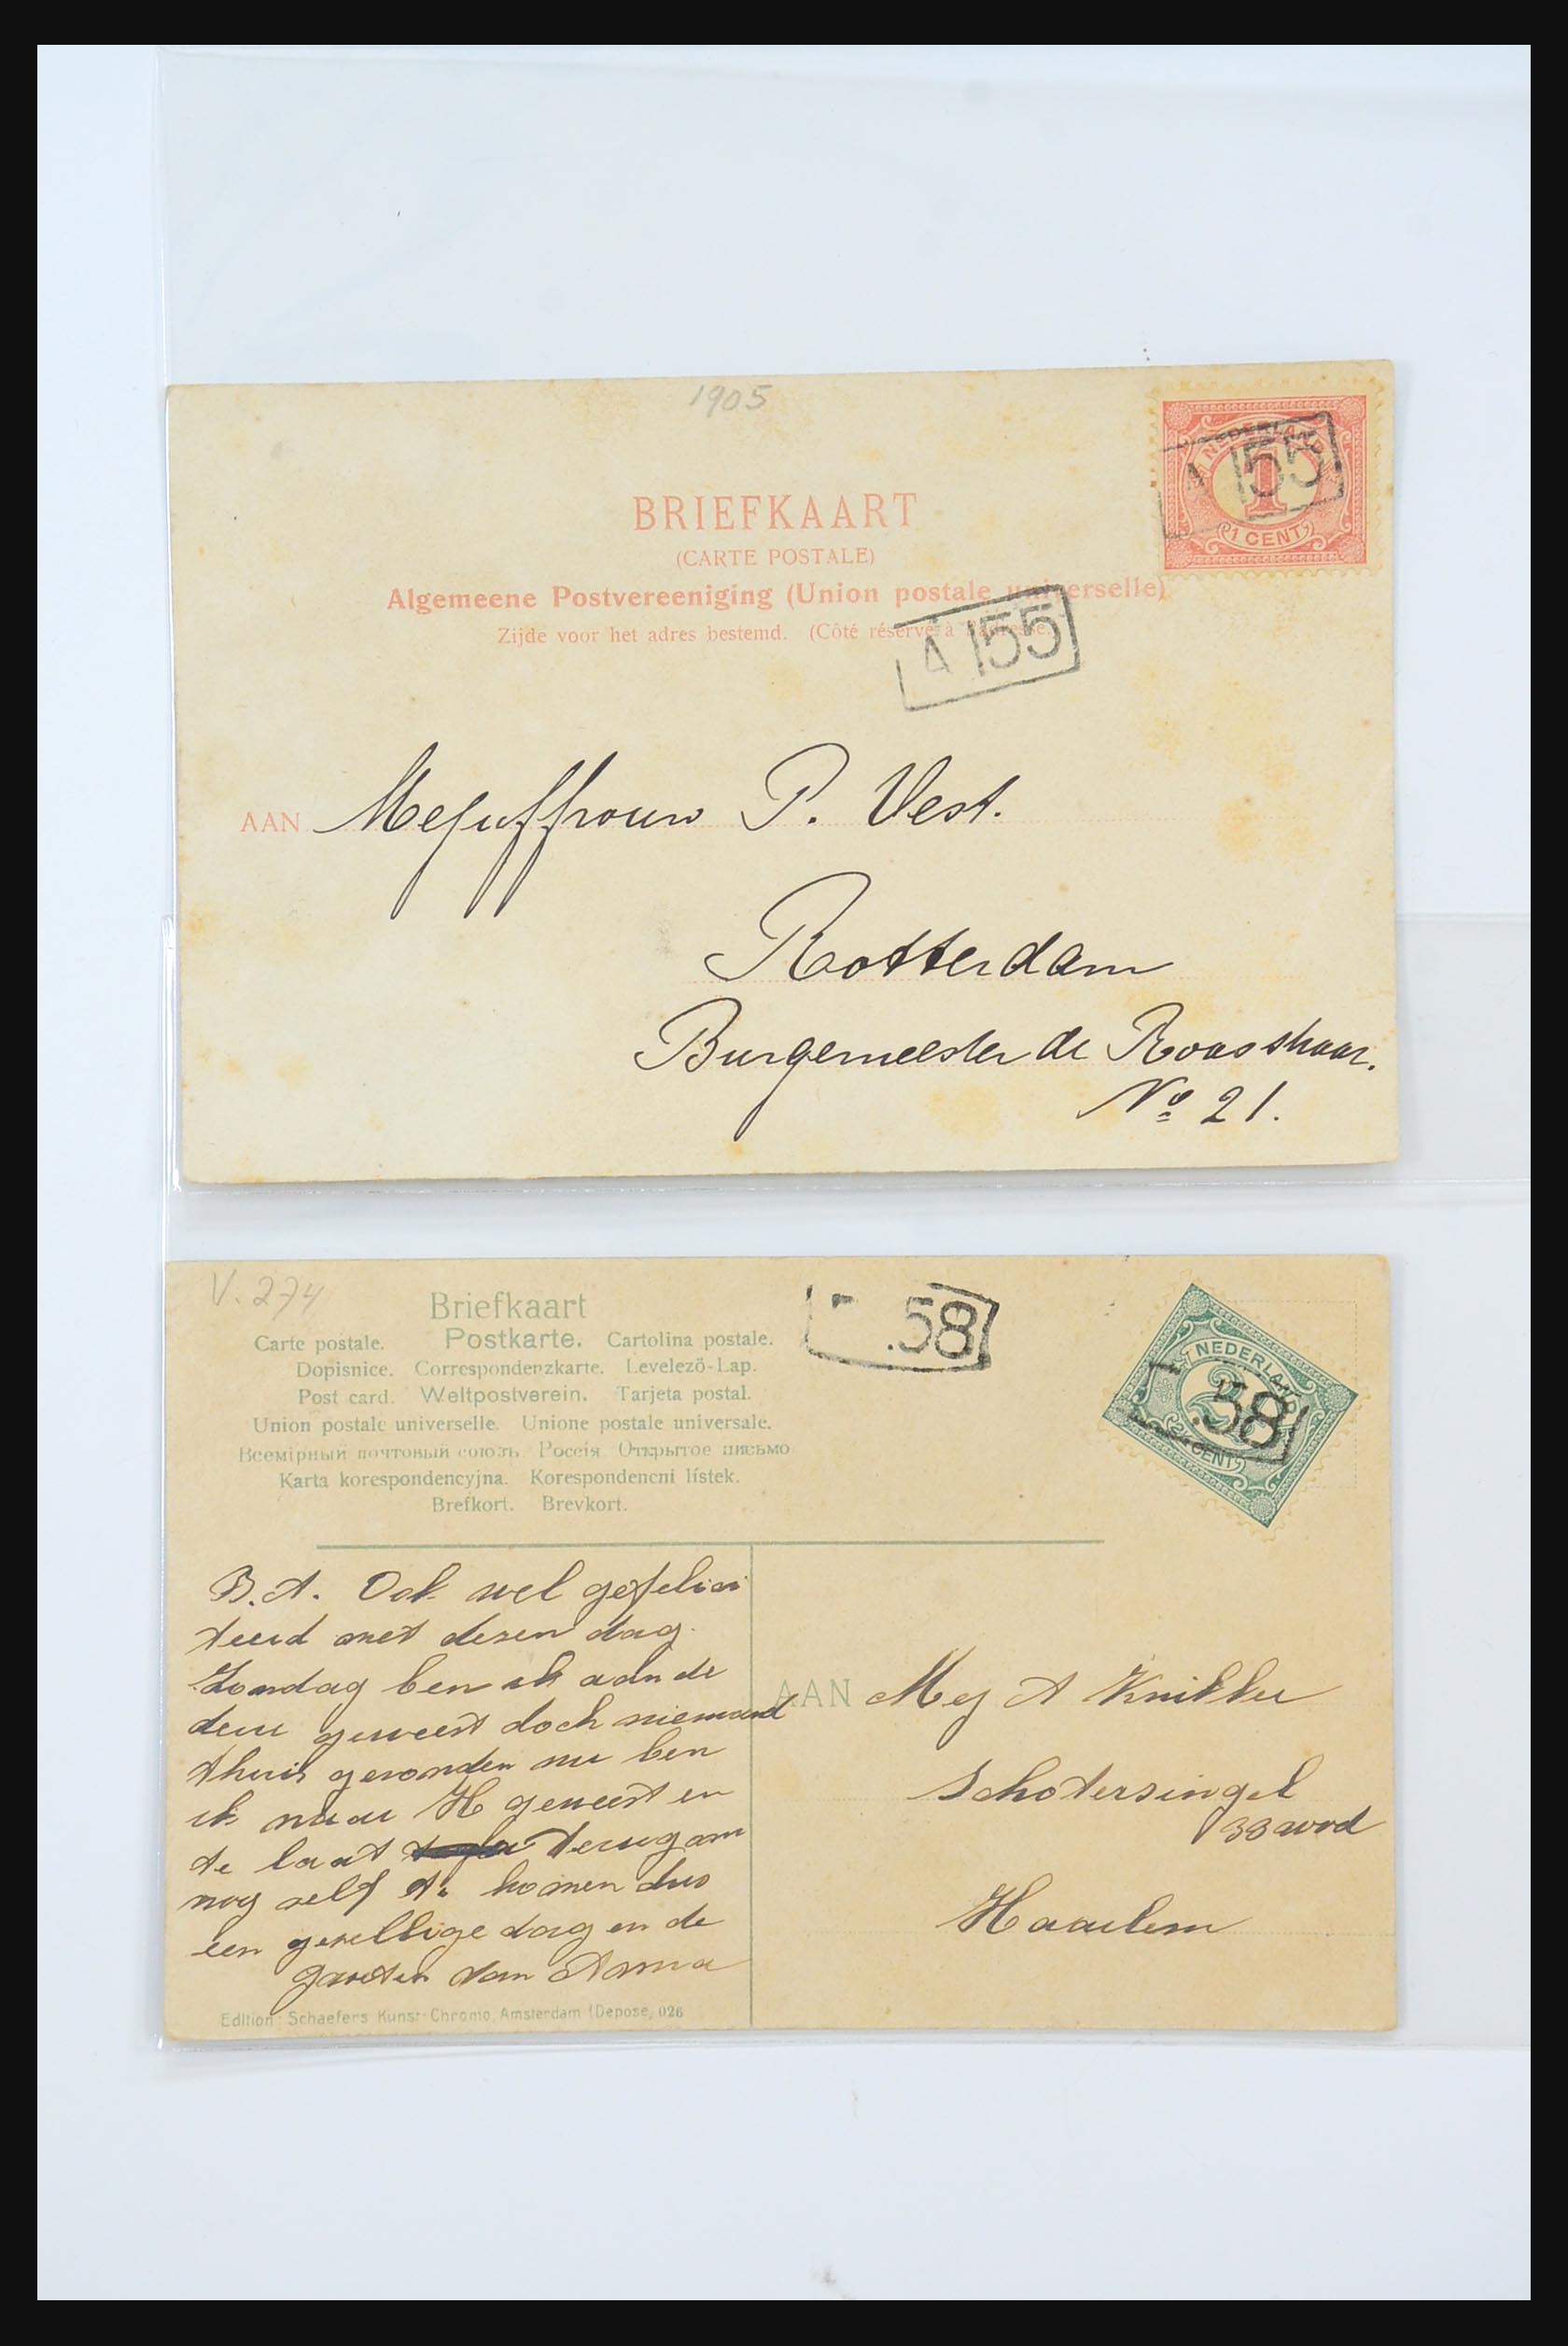 1905
BRIEFKAART
(CARTE POSTALE)
Algemeene Postvereeniging (Union postale universelle)
Zijde voor het adres bestemd. (Côté réservé à
NEDERLAND
1
1 CENT
A 155
A 155
AAN Mejuffrouw P. Vest.
Rotterdam
Burgemeester de Roosstraat.
No 21.
V. 274
Briefkaart
Carte postale. Postkarte. Cartolina postale.
Dopisnice. Correspondenzkarte. Levelező-Lap.
Post card. Weltpostverein. Tarjeta postal.
Union postale universelle. Unione postale universale.
Всемірный почтовый союзъ Россія Открытое письмо
Karta korespondencyjna. Korespondencni lístek.
Brefkort. Brevkort.
58
NEDERLAND
2½
CENT
58
B.A. Ook wel gefelici
teerd met dezen dag.
Zondag ben ik aan de
deur geweest doch niemand
thuis gevonden nu ben
ik naar H geweest en
te laat terug om
nog zelf te komen dus
een gezellige dag en de
groeten van Anna
AAN Mej A Knikker
Schotersingel
Haarlem
Edition: Schaefers Kunst-Chromo, Amsterdam (Deposé) 026